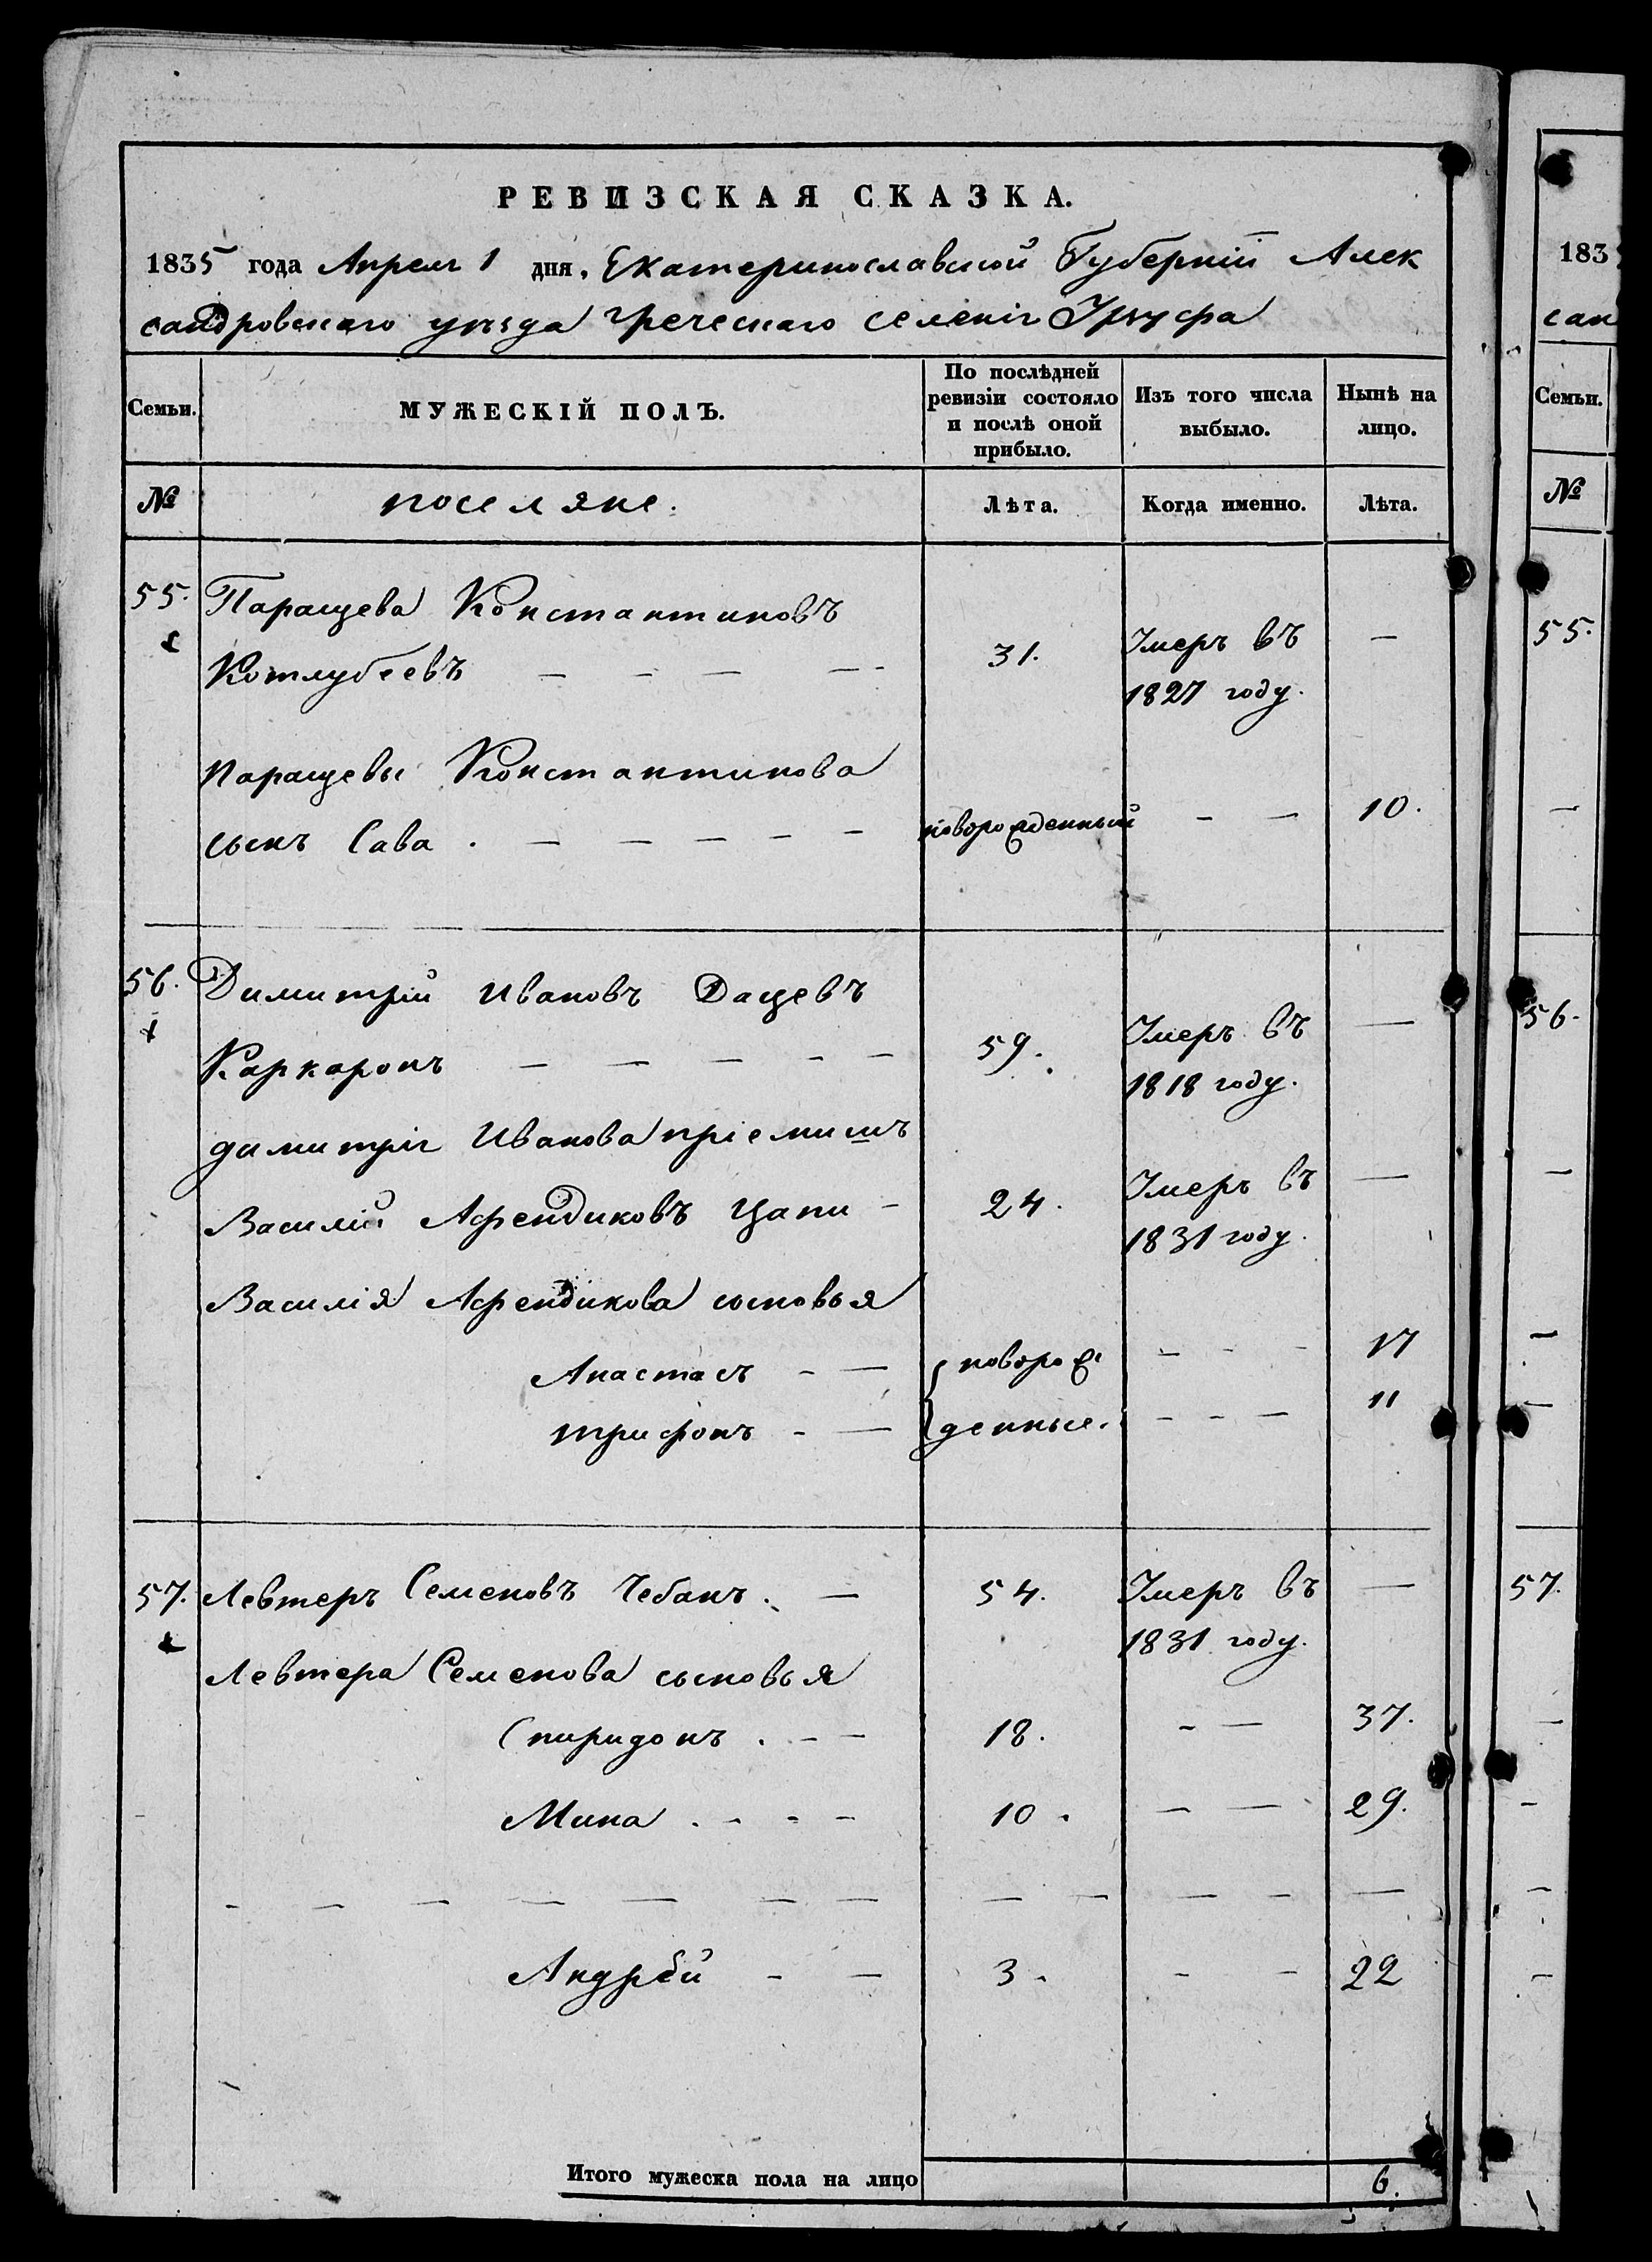 РЕВИЗСКАЯ СКАЗКА.
1835 года Апреля 1 дня, Екатеринославской Губерніи Алек
сандровскаго уезда Греческаго селенія Урзуфа
Семьи. МУЖЕСКІЙ ПОЛЪ. По послѣдней ревизіи состояло и послѣ оной прибыло. Изъ того числа выбыло. Нынѣ на лицо.
№ поселяне. Лѣта. Когда именно. Лѣта.
55. Паращева Константиновъ
Котлубеевъ — — — — 31. Умеръ въ —
1827 году.
Паращевы Константинова
сынъ Сава . — — — — — новорожденный — — 10.
56. Димитрій Ивановъ Дацевъ
Каркаронъ — — — — — 59. Умеръ въ —
1818 году.
димитрія Иванова пріемишъ
Василій Афендиковъ Цапи — 24. Умеръ въ —
1831 году.
Василія Афендикова сыновья
Анастасъ — — новорож — — — 17
трифонъ — — денные. — — — 11
57. Левтеръ Семеновъ Чебанъ . — 54. Умеръ въ —
1831 году.
Левтера Семенова сыновья
Спиридонъ . — — 18. — — 37.
Мина . — — — 10. — — 29.
— — — — — — — — — — — —
Андрей — — 3. — — 22
Итого мужеска пола на лицо 6.
183
сан
Семьи.
№
55.
56.
57.